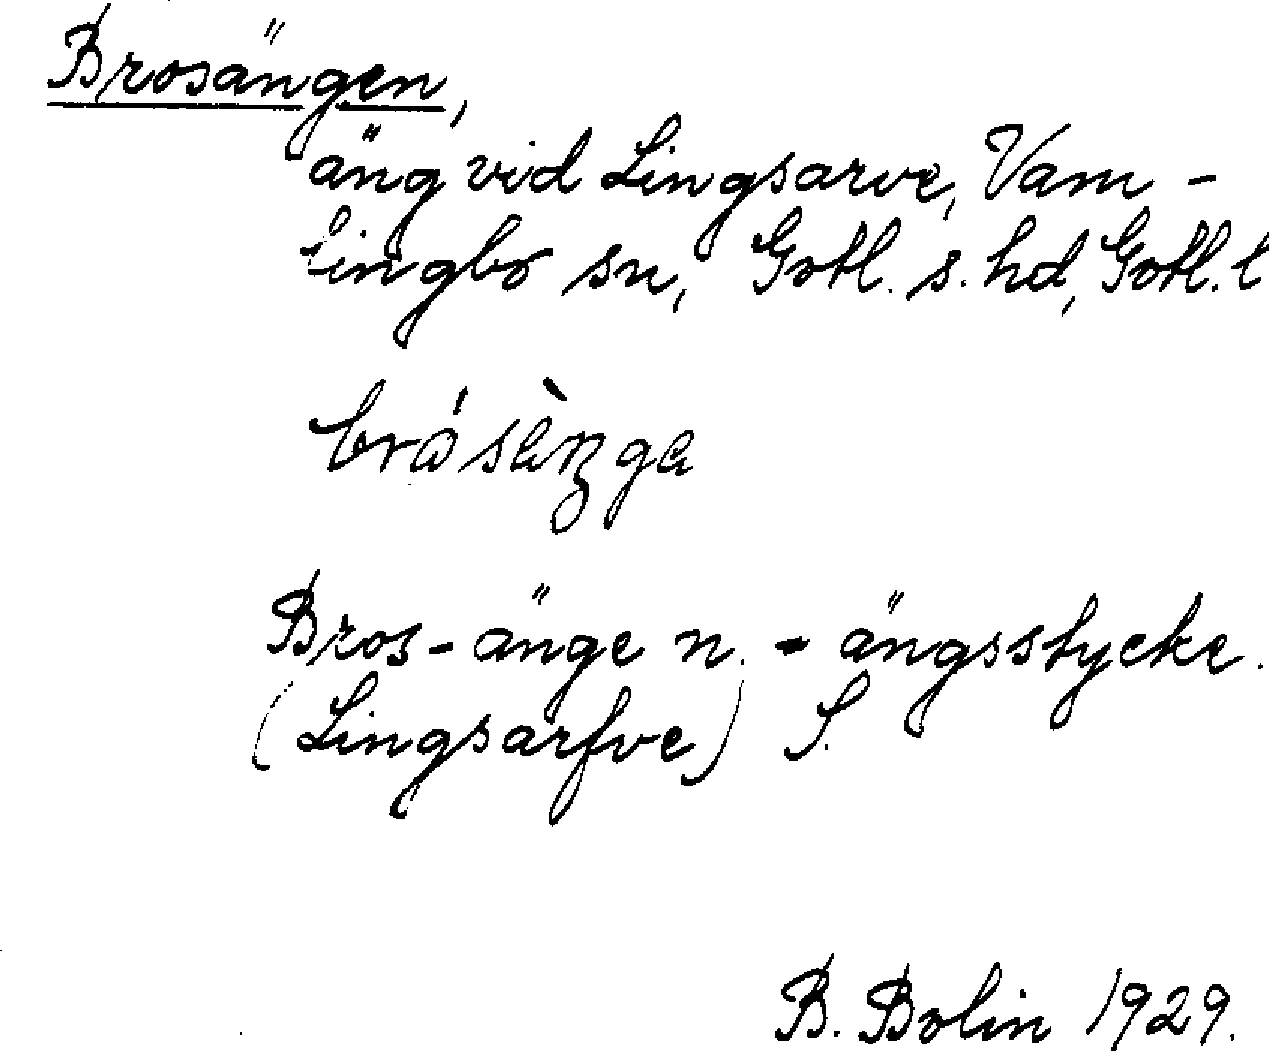 Brosängen,
äng vid Lingsarve, Vam-
lingbo sn, Gotl. s. hd, Gotl. l
Bros-änge n. - ängsstycke.
(Lingsarfve) S.
B. Bolin 1929.